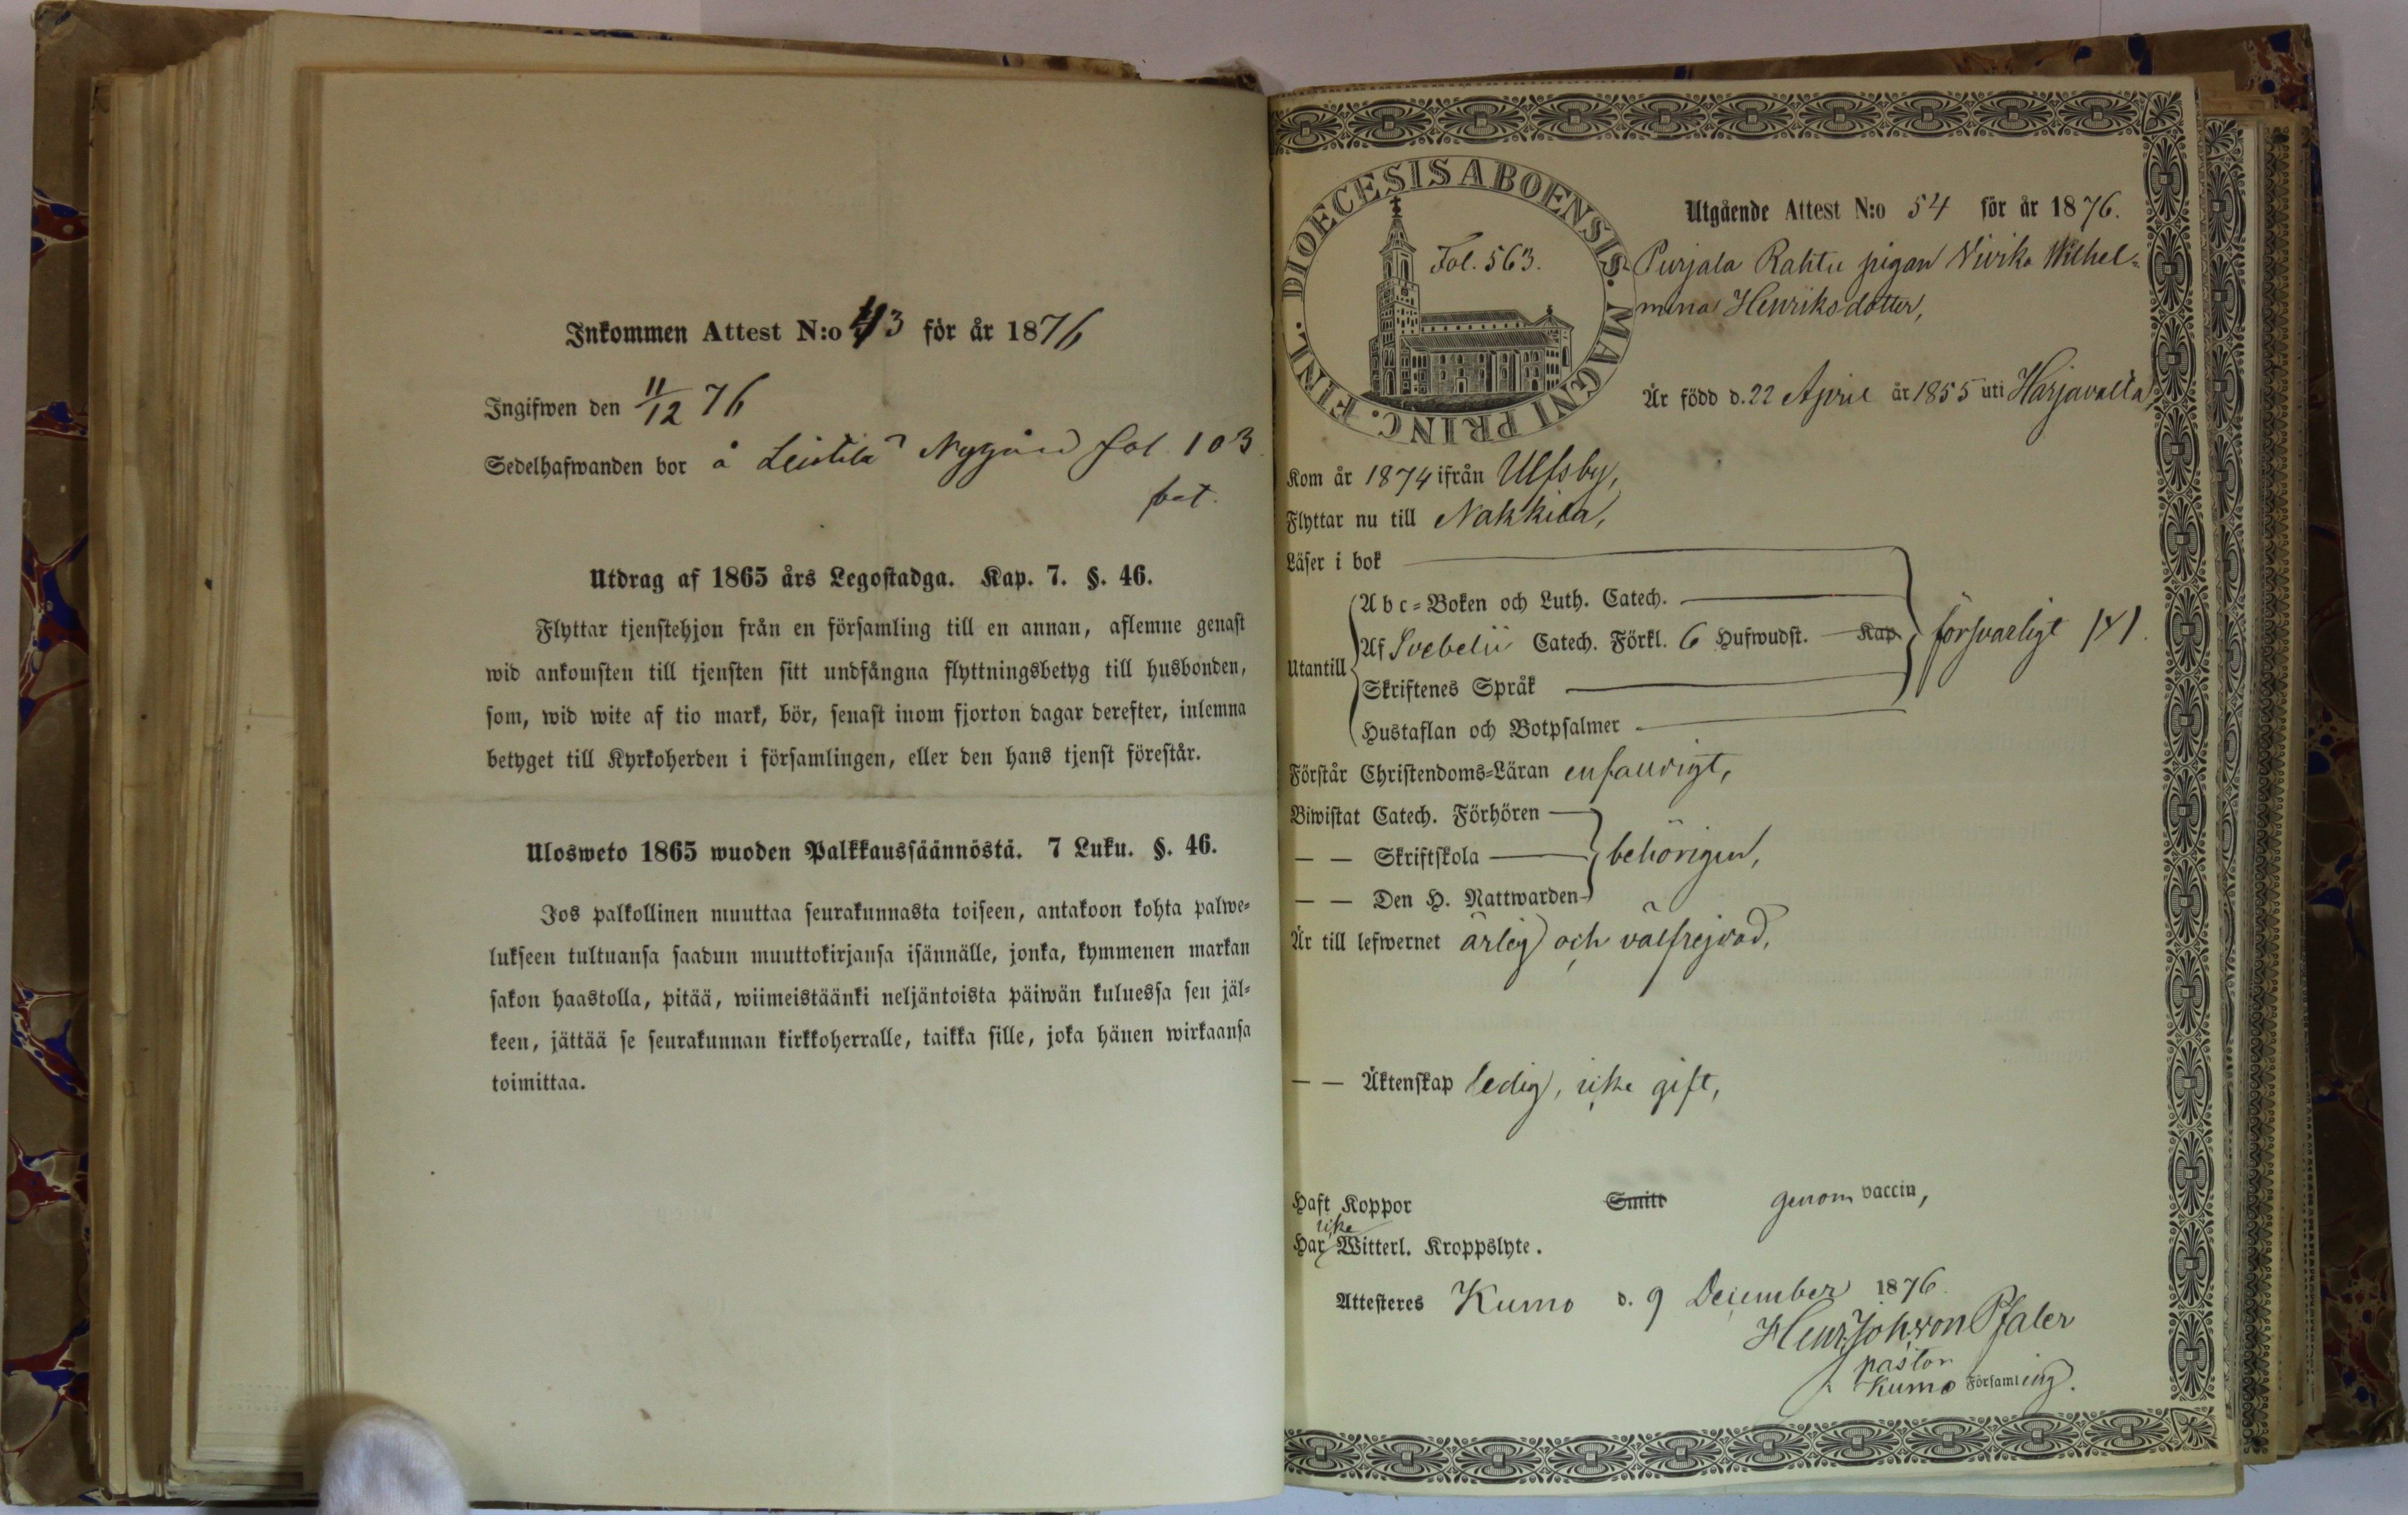 Inkommen Attest N:o 43 för år 1876
Ingifwen den 11/12 76
Sedelhafwanden bor å Leistilä Nygård fol. 103
bet.
Utdrag af 1865 års Legostadga. Kap. 7. §. 46.
Flyttar tjenstehjon från en församling till en annan, aflemne genast
wid ankomsten till tjensten sitt undfångna flyttningsbetyg till husbonden,
som, wid wite af tio mark, bör, senast inom fjorton dagar derefter, inlemna
betyget till Kyrkoherden i församlingen, eller den hans tjenst förestår.
Ulosweto 1865 wuoden Palkkaussäännöstä. 7 Luku. §. 46.
Jos palkollinen muuttaa seurakunnasta toiseen, antakoon kohta palwe-
lukseen tultuansa saadun muuttokirjansa isännälle, jonka, kymmenen markan
sakon haastolla, pitää, wiimeistäänki neljäntoista päiwän kuluessa sen jäl-
keen, jättää se seurakunnan kirkkoherralle, taikka sille, joka hänen wirkaansa
toimittaa.
DIOECESIS ABOENSIS. MAGNI PRINC. FINL.
Fol. 563.
Utgående Attest N:o 54 för år 1876.
Purjala Rahtu pigan Wilhel-
mina Henriksdotter,
Är född d. 22 April år 1855 uti Harjavalta,
Kom år 1874 ifrån Ulfsby,
Flyttar nu till Nakkila,
Läser i bok
Utantill
Abc-Boken och Luth. Catech.
Af Svebelii Catech. Förkl. 6 Hufwudst. Kap
Skriftenes Språk
Hustaflan och Botpsalmer
försvarligt
Förstår Christendoms-Läran enfaldigt,
Biwistat Catech. Förhören
— — Skriftskola
— — Den H. Nattwarden
behörigen,
Är till lefwernet ärlig och välfrejdad,
— — Äktenskap ledig, icke gift,
Haft Koppor Smitt genom vaccin,
Har icke Witterl. Kroppslyte.
Attesteres Kumo d. 9 December 1876.
Henr. Joh. von Pfaler
pastor
i Kumo Församling.